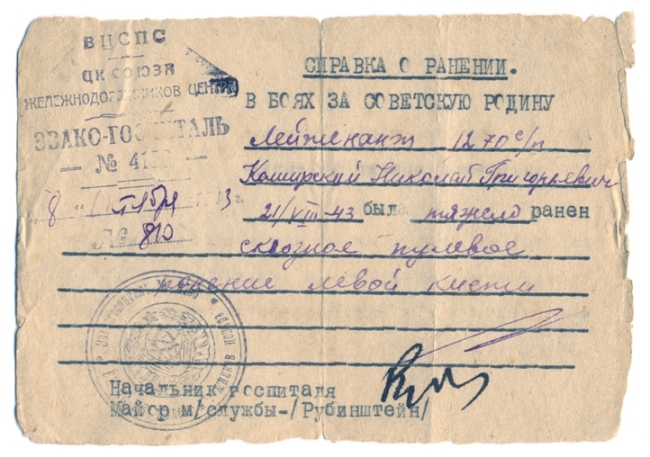 ВЦСПС
ЦК СОЮЗА
ЖЕЛЕЗНОДОРОЖНИКОВ ЦЕНТРА
ЭВАКО-ГОСПИТАЛЬ
— № 41
8 " тября 3 г.
№ 810
СПРАВКА О РАНЕНИИ.
В БОЯХ ЗА СОВЕТСКУЮ РОДИНУ
Лейтенант 1270 с/п
Кошурский Николай Григорьевич
21/VIII-43 был тяжело ранен
сквозное пулевое
ранение левой кисти
Начальник госпиталя
Майор м/службы-/Рубинштейн/